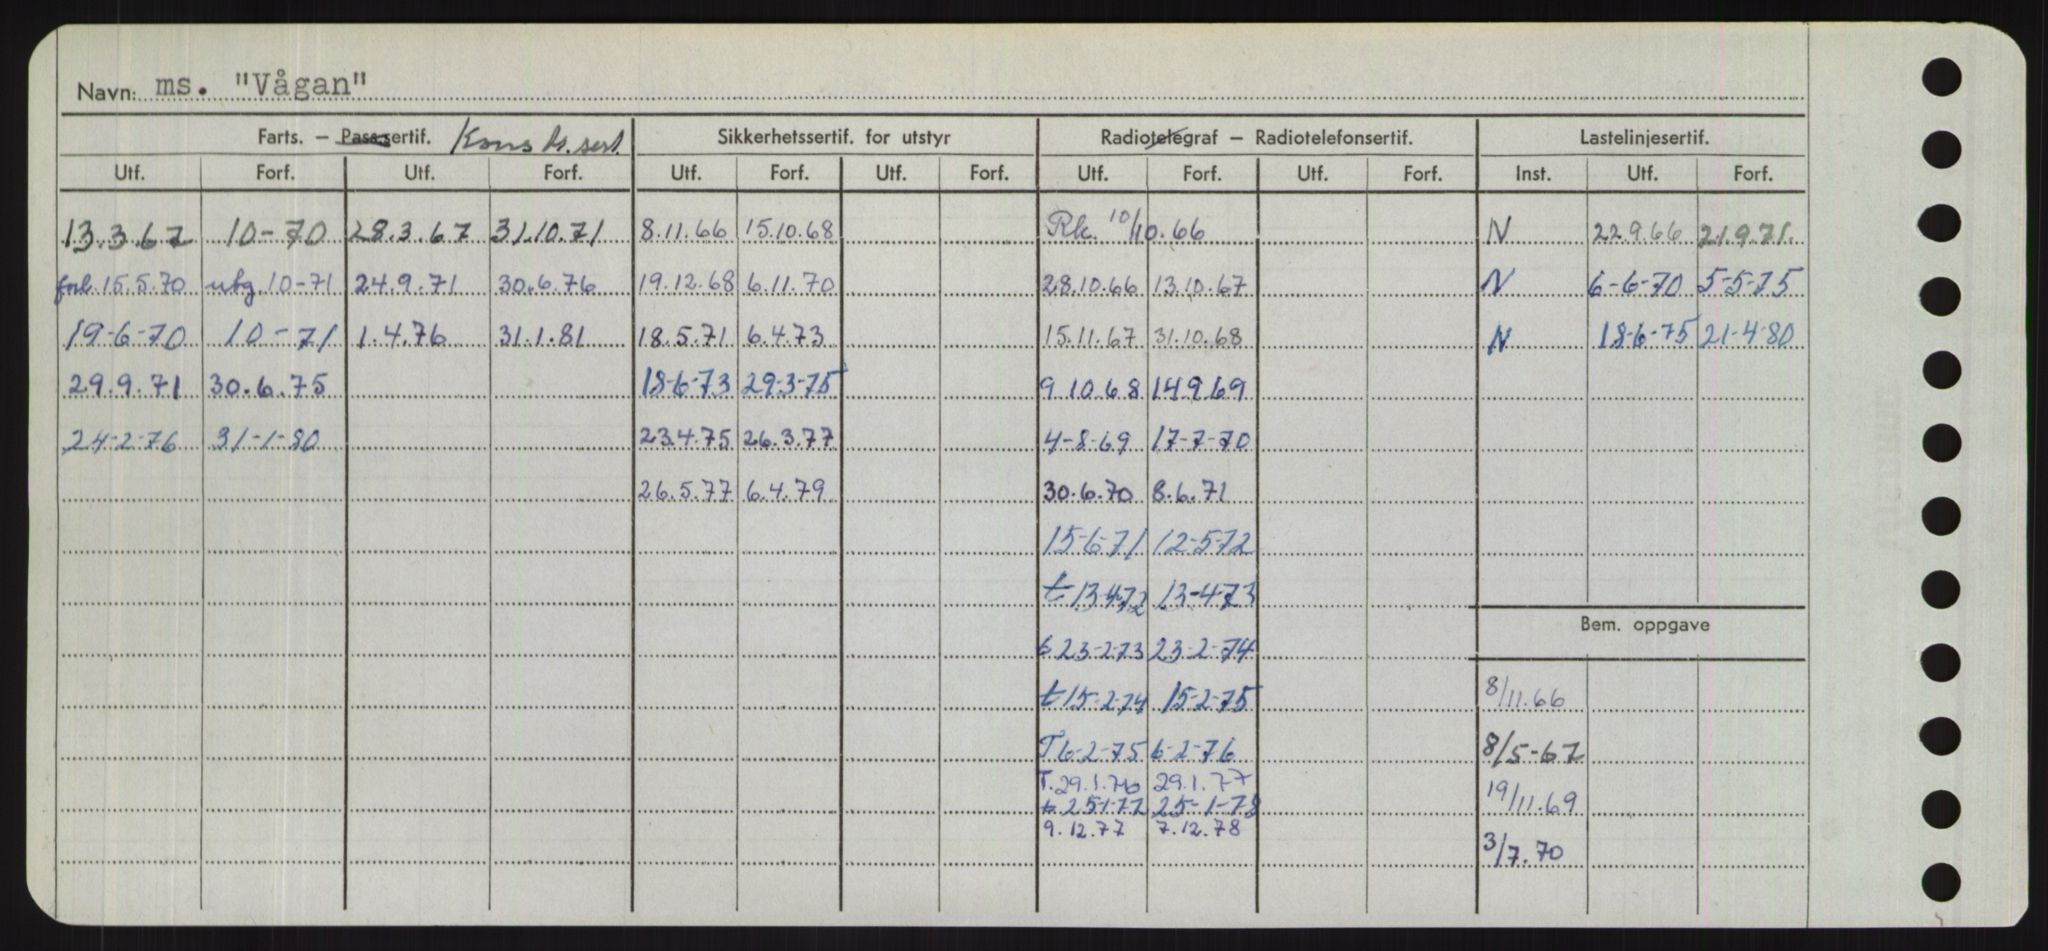 Navn: ms. "Vågan"
Farts. – Passsertif. Konst.sert. Sikkerhetssertif. for utstyr Radiotelegraf – Radiotelefonsertif. Lastelinjesertif.
Utf. Forf. Utf. Forf. Utf. Forf. Utf. Forf. Utf. Forf. Utf. Forf. Inst. Utf. Forf.
13.3.67 10-70 28.3.67 31.10.71 8.11.66 15.10.68 Rk. 10/10.66 N 22.9.66 21.9.71.
forl. 15.5.70 ubg 10-71 24.9.71 30.6.76 19.12.68 6.11.70 28.10.66 13.10.67 N 6-6-70 5-5-75
19-6-70 10-71 1.4.76 31.1.81 18.5.71 6.4.73 15.11.67 31.10.68 N 18-6-75 21-4-80
29.9.71 30.6.75 18-6-73 29-3-75 9.10.68 14.9.69
24-2-76 31-1-80 23.4.75 26.3.77 4-8-69 17-7-70
26.5.77 6.4.79 30.6.70 8.6.71
15-6-71 12-5-72
t 13-4-72 13-4-73
Bem. oppgave
t 23-2-73 23-2-74
t 15-2-74 15-2-75 8/11.66
T 6-2-75 6-2-76 8/5-67
T. 29.1.76 29.1.77
t. 25-1-77 25-1-78 19/11.69
9.12.77 7.12.78
3/7.70